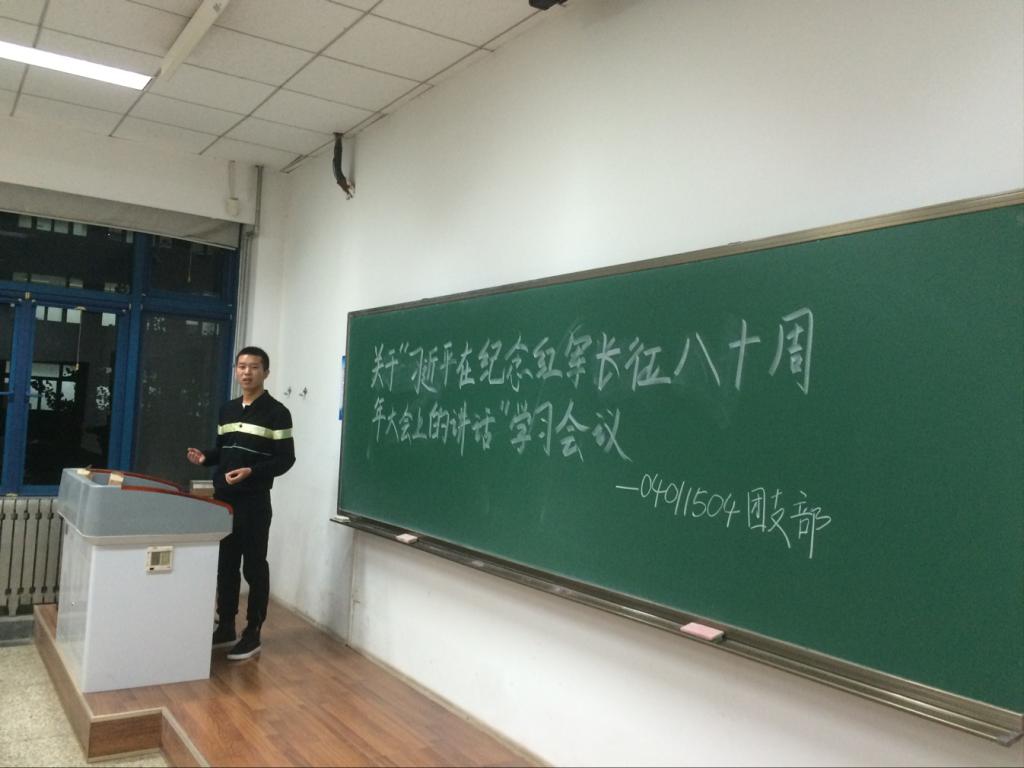 关于"习近平在纪念红军长征八十周
年大会上的讲话"学习会议
—04011504团支部